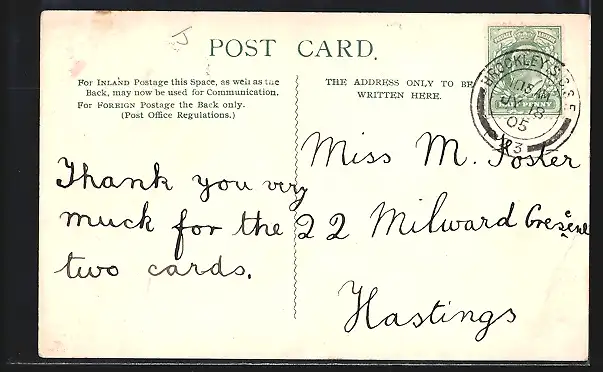 J
POST CARD.
For INLAND Postage this Space, as well as the
Back, may now be used for Communication.
For FOREIGN Postage the Back only.
(Post Office Regulations.)
THE ADDRESS ONLY TO BE
WRITTEN HERE.
BROCKLEY, S.O. S.E.
11.15 AM
18
05
23
PENNY
Thank you very
much for the
two cards.
Miss M. Foster
22 Milward Crescent
Hastings